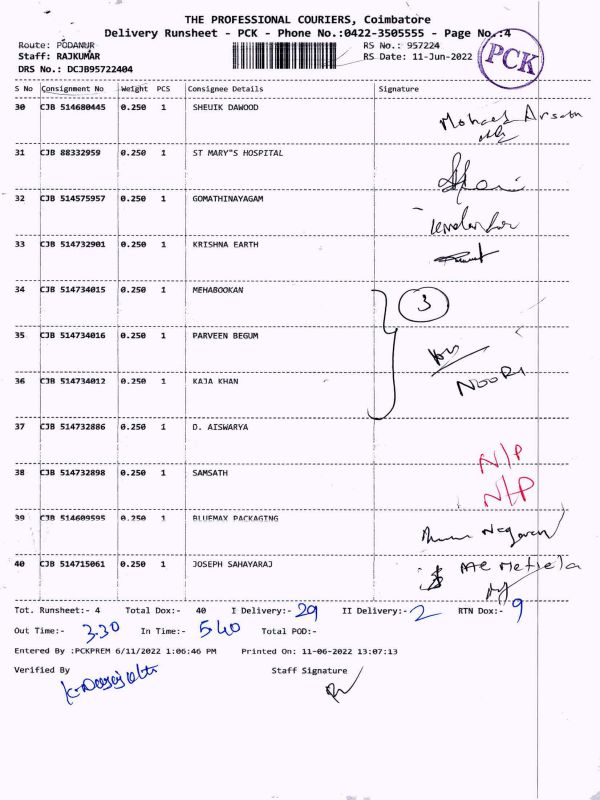 THE PROFESSIONAL COURIERS, Coimbatore
Delivery Runsheet - PCK - Phone No.:0422-3505555 - Page No.:4
Route: PODANUR
RS No.: 957224
Staff: RAJKUMAR
RS Date: 11-Jun-2022
PCK
DRS No.: DCJB95722404
S No Consignment No Weight PCS Consignee Details Signature
30 CJB 514680445 0.250 1 SHEUIK DAWOOD
31 CJB 88332959 0.250 1 ST MARY"S HOSPITAL
32 CJB 514575957 0.250 1 GOMATHINAYAGAM
33 CJB 514732901 0.250 1 KRISHNA EARTH
34 CJB 514734015 0.250 1 MEHABOOKAN
3
35 CJB 514734016 0.250 1 PARVEEN BEGUM
36 CJB 514734012 0.250 1 KAJA KHAN
NOORI
37 CJB 514732886 0.250 1 D. AISWARYA
N/P
38 CJB 514732898 0.250 1 SAMSATH
N/P
39 CJB 514609595 0.250 1 BLUEMAX PACKAGING
40 CJB 514715061 0.250 1 JOSEPH SAHAYARAJ
Tot. Runsheet:- 4 Total Dox:- 40 I Delivery:- 29 II Delivery:- 2 RTN Dox:- 9
Out Time:- 3.30 In Time:- 5.40 Total POD:-
Entered By :PCKPREM 6/11/2022 1:06:46 PM Printed On: 11-06-2022 13:07:13
Verified By Staff Signature